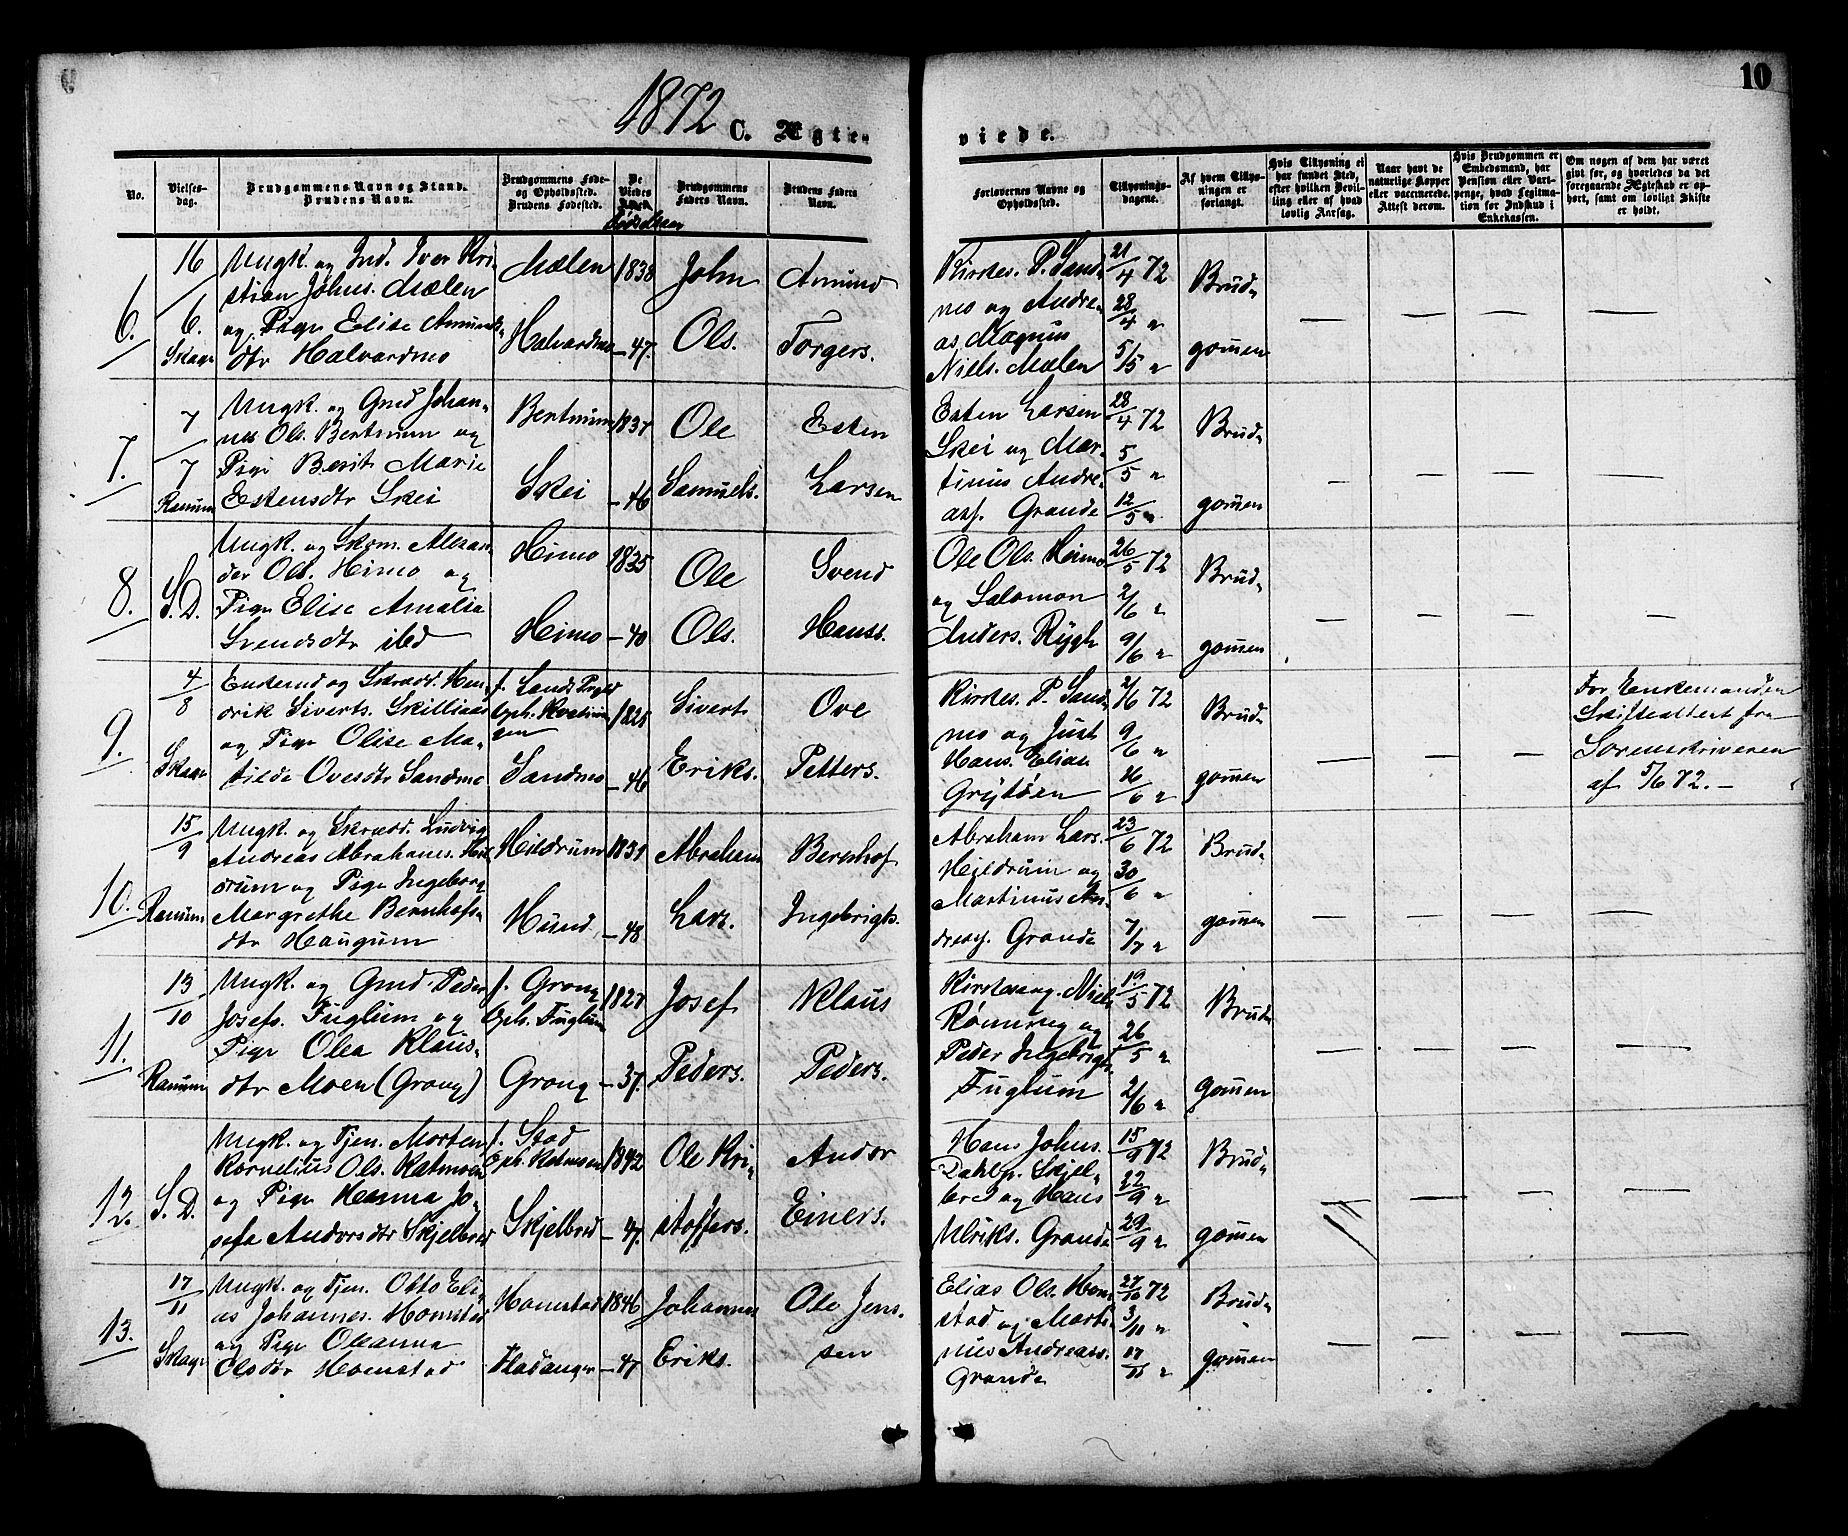 10
1872 C. Ægte- viede.
No.
Vielses-
dag.
Brudgommens Navn og Stand.
Brudens Navn.
Brudgommens Føde-
og Opholdssted.
Brudens Fødested.
De
Viedes
Fødselsaar
Brudgommens
Faders Navn.
Brudens Faders
Navn.
Forlovernes Navne og
Opholdssted.
Tillysnings-
dagene.
Af hvem Tillys-
ningen er
forlangt.
Hvis Tillysning ei
har fundet Sted,
efter hvilken Bevil-
ling eller af hvad
lovlig Aarsag.
Naar havt de
naturlige Kopper
eller vaccinerede.
Attest derom.
Hvis Brudgommen er
Embedsmand, har
Pension eller Vart-
penge, hvad Legitima-
tion for Indskud i
Enkekassen.
Om nogen af dem har været
gift før, og hvorledes da det
foregaaende Ægteskab er op-
hørt, samt om lovligt Skifte
er holdt.
6.
16
6.
Skage
Ungk. og Ind. Iver Kri-
stian Johns. Mælen
og Pige Elise Amunds-
dtr Halvardmo
Mælen
Halvardmo
1838
– 47.
John
Ols.
Amund
Torgers.
Kirkes. P. Sand-
mo og Andre-
as Magnus
Niels. Mælen
21/4 72
28/4 "
5/5 "
Brud-
gomen
— — — —
7.
7
7
Ranum
Ungk. og Gmd Johan-
nes Ols. Bertnum og
Pige Berit Marie
Estensdtr Skei
Bertnum
Skei
1837
– 46
Ole
Samuels.
Esten
Larsen
Esten Larsen
Skei og Mar-
tinus Andre-
asf. Grande
28/4 72
5/5 "
12/5 "
Brud-
gomen
— — — —
8.
S. D.
Ungk. og Skom. Alexan-
der Ols. Himo og
Pige Elise Amalia
Svendsdtr ibd
Himo
Himo
1835
– 40
Ole
Ols.
Svend
Hanss.
Ole Ols. Heimo
og Salomon
Anders. Rygh
26/5 72
2/6 "
9/6 "
Brud-
gomen
— — — —
9.
4
8
Skage
Enkemd og Skrædd. Hen-
drik Siverts. Skilliaas
og Pige Olise Ma-
tilde Ovesdtr Sandmo
Sandmo
1825
– 46
Sivert
Eriks.
Ove
Petters.
Kirkes. P. Sand-
mo og Just
Hans. Elian
Grytøen
2/6 72
9/6 "
16/6 "
Brud-
gomen
— — —
For Enkemanden
Skifteattest fra
Sorenskriveren
af 5/6 72. –
10.
15
9
Ranum
Ungk. og Skrædd. Ludvig
Andreas Abrahams. Hil-
drum og Pige Ingeborg
Margrethe Bernhofs-
dtr Haugum
Hildrum
Hund
1831
– 48
Abraham
Lars.
Bernhof
Ingebrigts.
Abraham Lars.
Hildrum og
Martinus An-
dreasf. Grande
23/6 72
30/6 "
7/7 "
Brud-
gomen
— — — —
11.
13
10
Ranum
Ungk. og Gmd. Peder
Josefs. Fuglum og
Pige Olea Klaus-
dtr Moen (Grong)
f. Grong
Oph. Fuglum
Grong
1827
– 37.
Josef
Peders.
Klaus
Peders.
Kirkesang. Niels
Rønning og
Peder Ingebrigt.
Fuglum
19/5 72
26/5 "
2/6 "
Brud-
gomen
— — — —
12.
S. D.
Ungk. og Tjen. Morten
Kornelius Ols. Kalmoen
og Pige Hanna Jo-
sefa Andorsdtr Skjelbred
f. Stod
Skjelbred
1842
– 47.
Ole Kri-
stoffers.
Andor
Einers.
Hans Johns.
Dahlp. Skjel-
bred og Hans
Ulriks. Grande
15/9 72
22/9 "
29/9 "
Brud-
gomen
— — — —
13.
17
11
Skage
Ungk. og Tjen. Otto Eli-
as Johannes. Homstad
og Pige Oleanna
Olsdtr Homstad
Homstad
Fladanger
1846
– 47
Johannes
Eriks.
Ole Jens-
sen
Elias Ols. Hom-
stad og Marti-
nus Andreass.
Grande
27/10 72
3/11 "
17/11 "
Brud-
gomen
— — — —